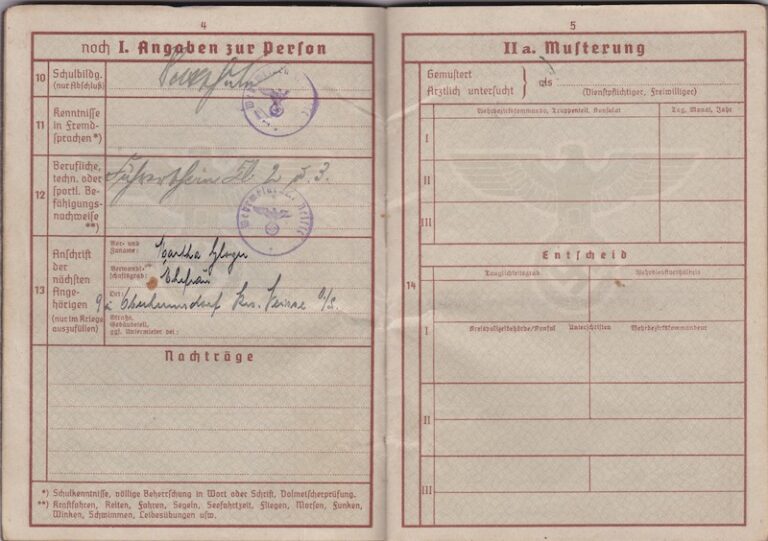 4
noch I. Angaben zur Person
10 Schulbildg. (nur Abschluß)
Volksschule
11 Kenntnisse in Fremd-sprachen *)
12 Berufliche, techn. oder sportl. Be-fähigungs-nachweise **)
Führerschein Kl. 2 u. 3.
Wehrmeldeamt Neisse
13 Anschrift der nächsten Ange-hörigen (nur im Kriege auszufüllen)
Vor- und Zuname:
Martha
Verwandt-schaftsgrad:
Ehefrau
Ort:
Krs. Neisse O/S.
Straße, Gebäudeteil, ggf. Untermieter bei:
Nachträge
*) Schulkenntnisse, völlige Beherrschung in Wort oder Schrift, Dolmetscherprüfung.
**) Kraftfahren, Reiten, Fahren, Segeln, Seefahrtzeit, Fliegen, Morsen, Funken,
Winken, Schwimmen, Leibesübungen usw.
5
II a. Musterung
Gemustert
Ärztlich untersucht } als
(Dienstpflichtiger, Freiwilliger)
Wehrbezirkskommando, Truppenteil, Konsulat
Tag, Monat, Jahr
I
II
III
Entscheid
14
Tauglichkeitsgrad
Wehrdienstverhältnis
I
Kreispolizeibehörde/Konsul Unterschriften Wehrbezirkskommandeur
II
III